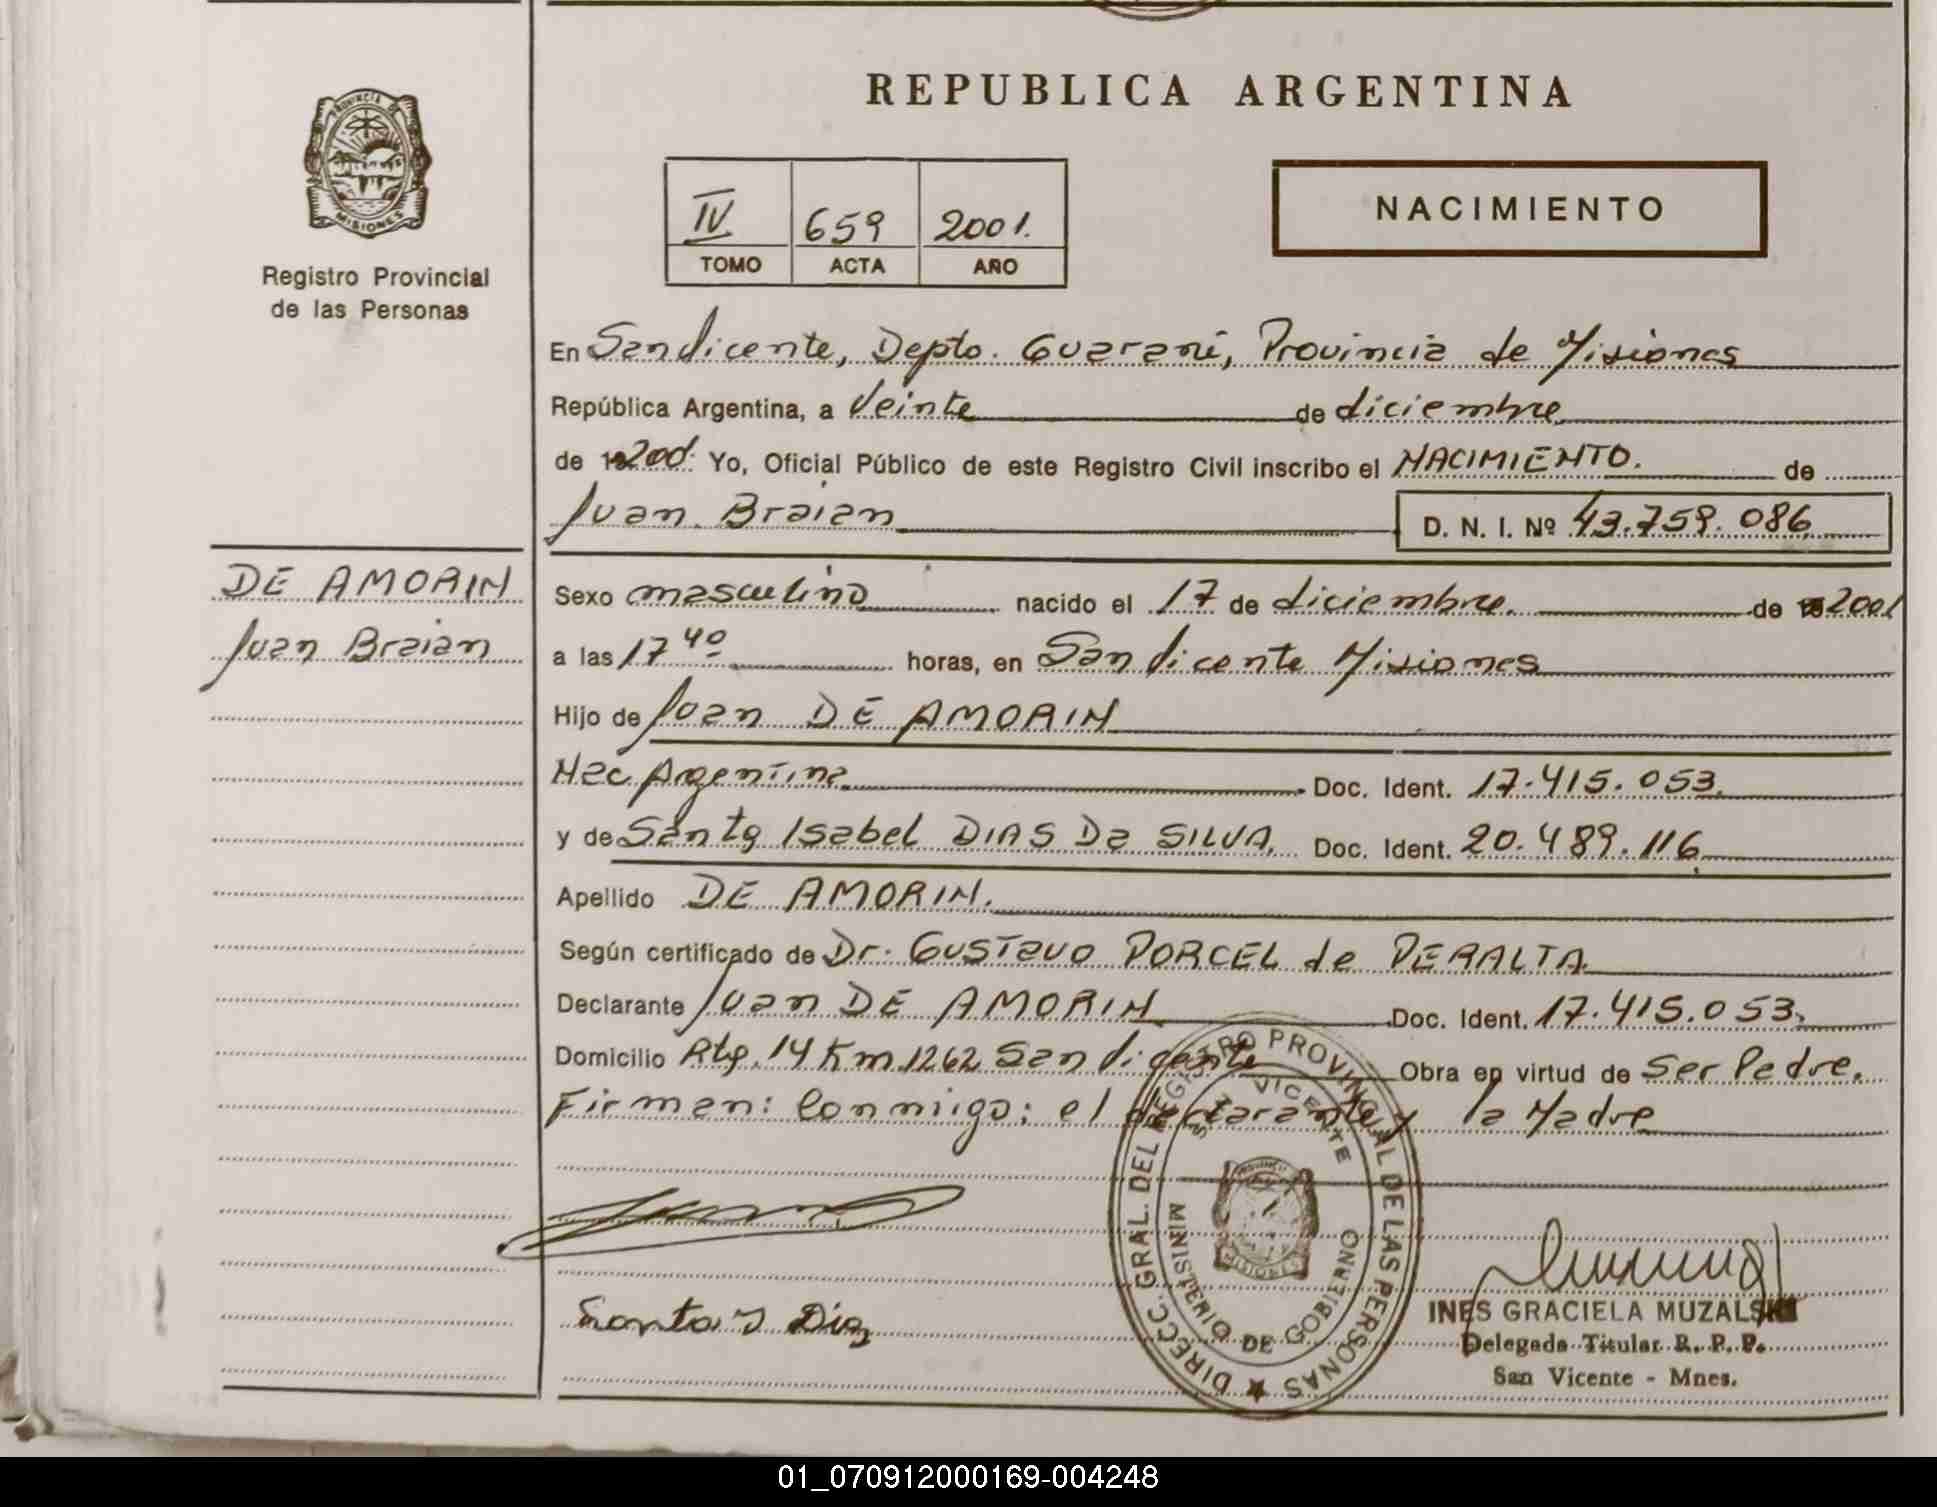 REPUBLICA ARGENTINA
PROVINCIA DE
MISIONES
Registro Provincial
de las Personas
IV 659 2001.
TOMO ACTA AÑO
NACIMIENTO
En San Vicente, Depto. Guaraní, Provincia de Misiones
República Argentina, a Veinte de diciembre
de 2001. Yo, Oficial Público de este Registro Civil inscribo el NACIMIENTO. de
Juan Braian D. N. I. Nº 43.759.086
DE AMORIN
Juan Braian
Sexo masculino nacido el 17 de diciembre de 2001
a las 17 40 horas, en San Vicente Misiones
Hijo de Juan DE AMORIN
Nac Argentina Doc. Ident. 17.415.053.
y de Santa Isabel DIAS Da SILVA. Doc. Ident. 20.489.116
Apellido DE AMORIN.
Según certificado de Dr. GUSTAVO PORCEL de PERALTA
Declarante Juan DE AMORIN Doc. Ident. 17.415.053.
Domicilio Rta. 14 Km 1262 San Vicente Obra en virtud de Ser Padre.
Firman: Conmigo: el declarante y la Madre
DIRECC. GRAL. DEL REGISTRO PROVINCIAL DE LAS PERSONAS
SAN VICENTE
MINISTERIO DE GOBIERNO
MISIONES
INES GRACIELA MUZALSKI
Delegada Titular R. P. P.
San Vicente - Mnes.
01_070912000169-004248